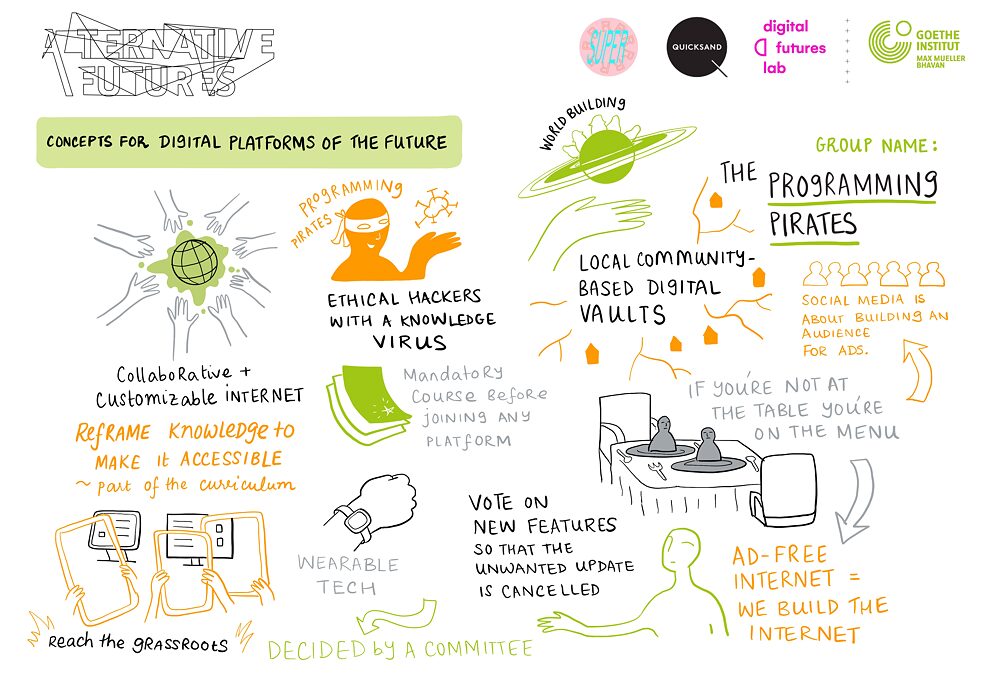 ALTERNATIVE
FUTURES
SUPER
QUICKSAND
digital
futures
lab
GOETHE
INSTITUT
MAX MUELLER
BHAVAN
CONCEPTS FOR DIGITAL PLATFORMS OF THE FUTURE
WORLD BUILDING
GROUP NAME:
THE PROGRAMMING
PIRATES
PROGRAMMING
PIRATES
ETHICAL HACKERS
WITH A KNOWLEDGE
VIRUS
LOCAL COMMUNITY-
BASED DIGITAL
VAULTS
SOCIAL MEDIA IS
ABOUT BUILDING AN
AUDIENCE
FOR ADS.
Collaborative +
Customizable INTERNET
REFRAME Knowledge to
MAKE it ACCESSIBLE
~ part of the curriculum
Mandatory
Course Before
joining any
platform
IF YOU'RE NOT AT
THE TABLE YOU'RE
ON THE MENU
WEARABLE
TECH
VOTE ON
NEW FEATURES
SO THAT THE
UNWANTED UPDATE
IS CANCELLED
AD-FREE
INTERNET =
WE BUILD THE
INTERNET
Reach the GRASSROOTS
DECIDED by A COMMITTEE